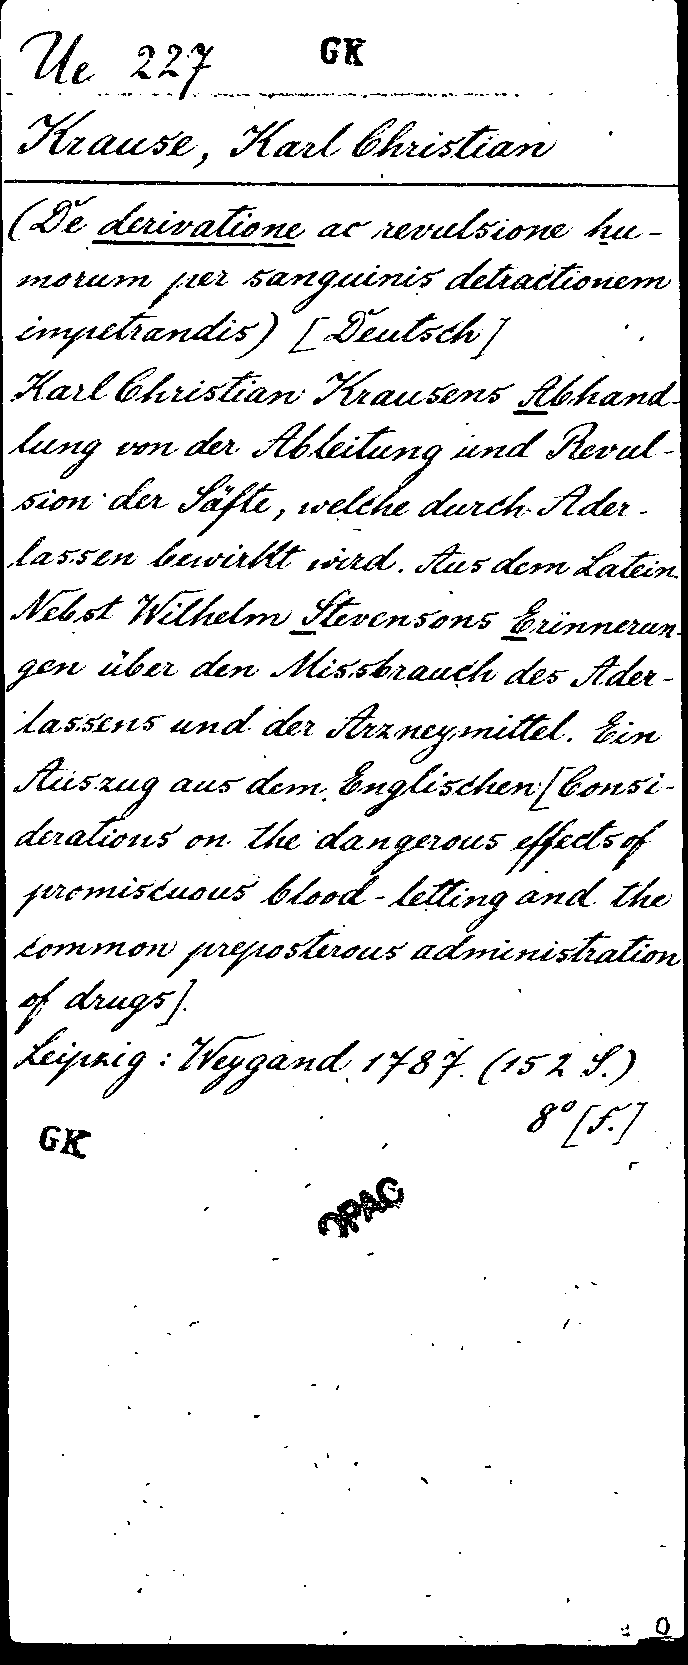 Ue 227 GK
Krause, Karl Christian
(De derivatione ac revulsione hu-
morum per sanguinis detractionem
impetrandis) [Deutsch]
Karl Christian Krausens Abhand-
lung von der Ableitung und Revul-
sion der Säfte, welche durch Ader-
lassen bewirkt wird. Aus dem Latein.
Nebst Wilhelm Stevensons Erinnerun-
gen über den Missbrauch des Ader-
lassens und der Arzneymittel. Ein
Auszug aus dem Englischen [Consi-
derations on the dangerous effects of
promiscuous blood-letting and the
common preposterous administration
of drugs].
Leipzig: Weygand 1787. (152 S.)
8° [F.]
GK
OPAC
0